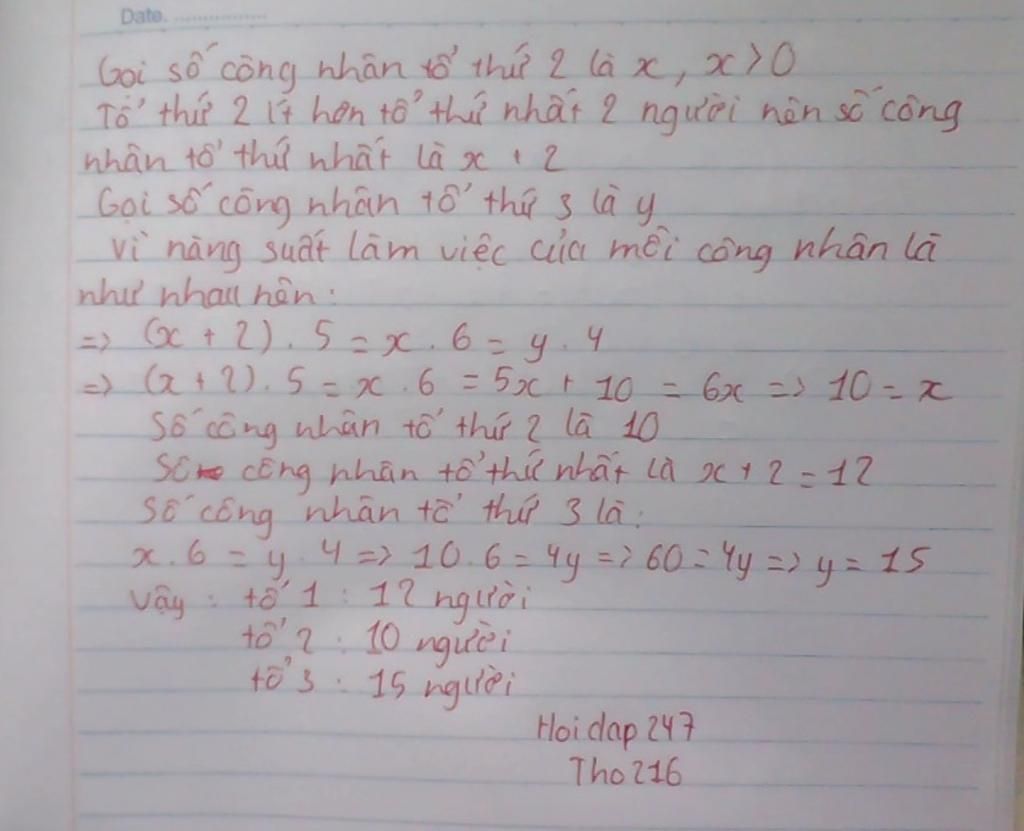 Date. ................
Gọi số công nhân tổ thứ 2 là x, x > 0
Tổ thứ 2 ít hơn tổ thứ nhất 2 người nên số công
nhân tổ thứ nhất là x + 2
Gọi số công nhân tổ thứ 3 là y
Vì năng suất làm việc của mỗi công nhân là
như nhau nên:
=> (x + 2) . 5 = x . 6 = y . 4
=> (x + 2) . 5 = x . 6 = 5x + 10 = 6x => 10 = x
Số công nhân tổ thứ 2 là 10
Số công nhân tổ thứ nhất là x + 2 = 12
Số công nhân tổ thứ 3 là:
x . 6 = y . 4 => 10 . 6 = 4y => 60 = 4y => y = 15
Vậy : tổ 1 : 12 người
tổ 2 : 10 người
tổ 3 : 15 người
Hoidap247
Tho216